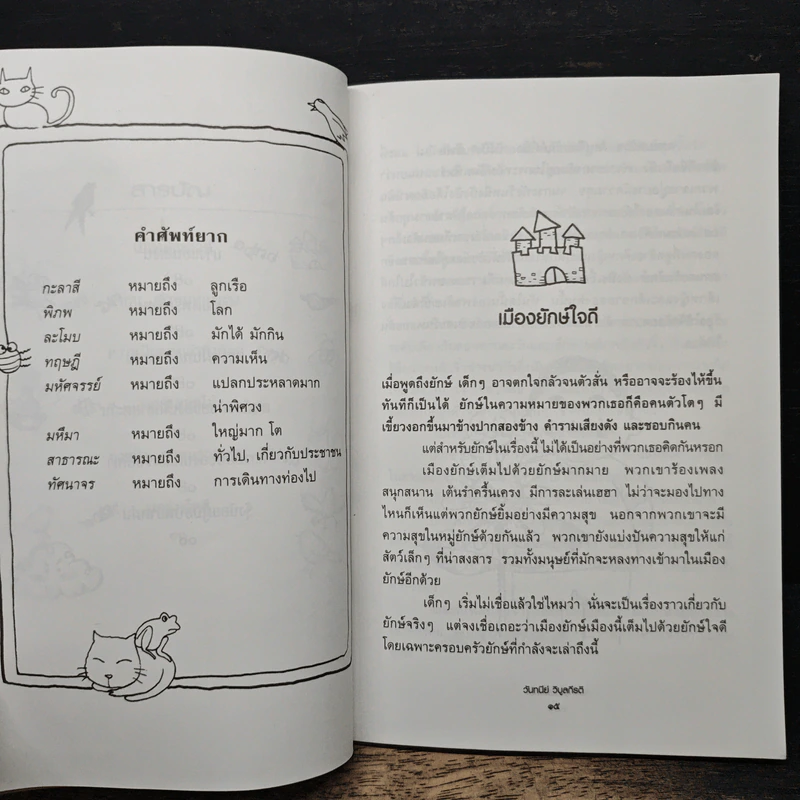 คำศัพท์ยาก
กะลาสี หมายถึง ลูกเรือ
พิภพ หมายถึง โลก
ละโมบ หมายถึง มักได้ มักกิน
ทฤษฎี หมายถึง ความเห็น
มหัศจรรย์ หมายถึง แปลกประหลาดมาก
น่าพิศวง
มหึมา หมายถึง ใหญ่มาก โต
สาธารณะ หมายถึง ทั่วไป, เกี่ยวกับประชาชน
ทัศนาจร หมายถึง การเดินทางท่องไป
เมืองยักษ์ใจดี
เมื่อพูดถึงยักษ์ เด็กๆ อาจตกใจกลัวจนตัวสั่น หรืออาจจะร้องไห้ขึ้น
ทันทีก็เป็นได้ ยักษ์ในความหมายของพวกเธอก็คือคนตัวโตๆ มี
เขี้ยวงอกขึ้นมาข้างปากสองข้าง คำรามเสียงดัง และชอบกินคน
แต่สำหรับยักษ์ในเรื่องนี้ ไม่ได้เป็นอย่างที่พวกเธอคิดกันหรอก
เมืองยักษ์เต็มไปด้วยยักษ์มากมาย พวกเขาร้องเพลง
สนุกสนาน เต้นรำครื้นเครง มีการละเล่นเฮฮา ไม่ว่าจะมองไปทาง
ไหนก็เห็นแต่พวกยักษ์ยิ้มอย่างมีความสุข นอกจากพวกเขาจะมี
ความสุขในหมู่ยักษ์ด้วยกันแล้ว พวกเขายังแบ่งปันความสุขให้แก่
สัตว์เล็กๆ ที่น่าสงสาร รวมทั้งมนุษย์ที่มักจะหลงทางเข้ามาในเมือง
ยักษ์อีกด้วย
เด็กๆ เริ่มไม่เชื่อแล้วใช่ไหมว่า นั่นจะเป็นเรื่องราวเกี่ยวกับ
ยักษ์จริงๆ แต่จงเชื่อเถอะว่าเมืองยักษ์เมืองนี้เต็มไปด้วยยักษ์ใจดี
โดยเฉพาะครอบครัวยักษ์ที่กำลังจะเล่าถึงนี้
วันทนีย์ วิบูลกีรติ
๑๕